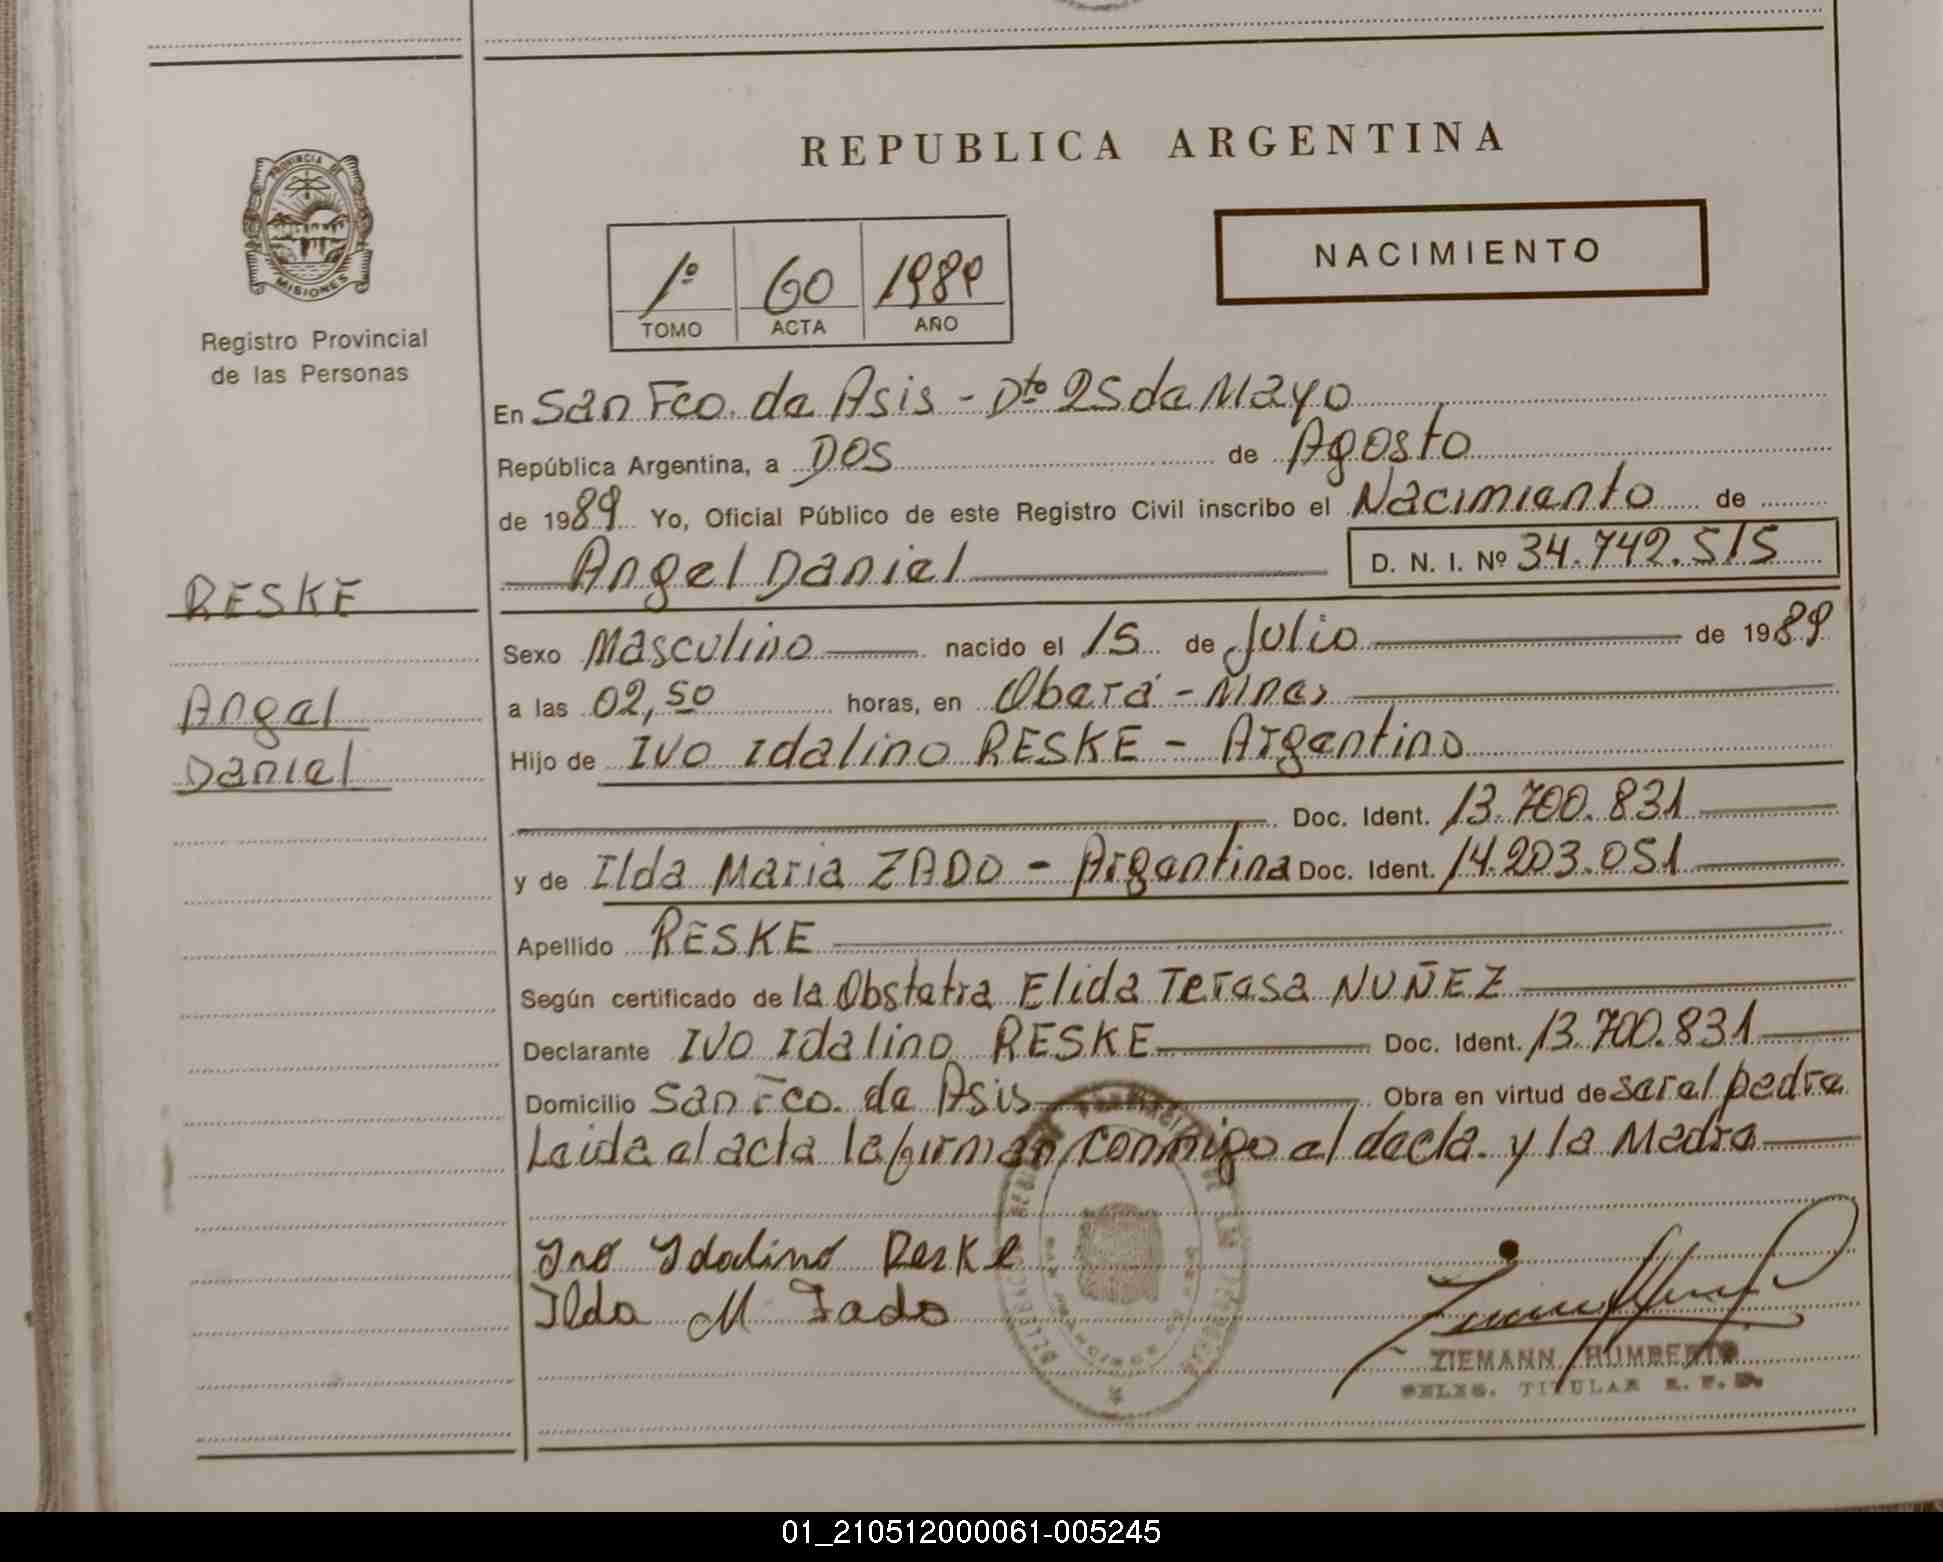 REPUBLICA ARGENTINA
PROVINCIA DE MISIONES
NACIMIENTO
1º 60 1989
TOMO ACTA AÑO
Registro Provincial
de las Personas
En San Fco. de Asis - Dto 25 de Mayo
República Argentina, a DOS de Agosto
de 1989 Yo, Oficial Público de este Registro Civil inscribo el Nacimiento de
Angel Daniel D. N. I. Nº 34.742.515
RESKE
Angel
Daniel
Sexo Masculino nacido el 15 de Julio de 1989
a las 02,50 horas, en Oberá - Mnes
Hijo de Ivo Idalino RESKE - Argentino
Doc. Ident. 13.700.831
y de Ilda Maria ZADO - Argentina Doc. Ident. 14.203.051
Apellido RESKE
Según certificado de la Obstetra Elida Teresa NUÑEZ
Declarante Ivo Idalino RESKE Doc. Ident. 13.700.831
Domicilio San Fco. de Asis Obra en virtud de ser el padre
Leida el acta la firman conmigo el decla. y la Madre
Ivo Idalino Reske
Ilda M Zado
ZIEMANN HUMBERTO
DELEG. TITULAR R. P. P.
01_210512000061-005245